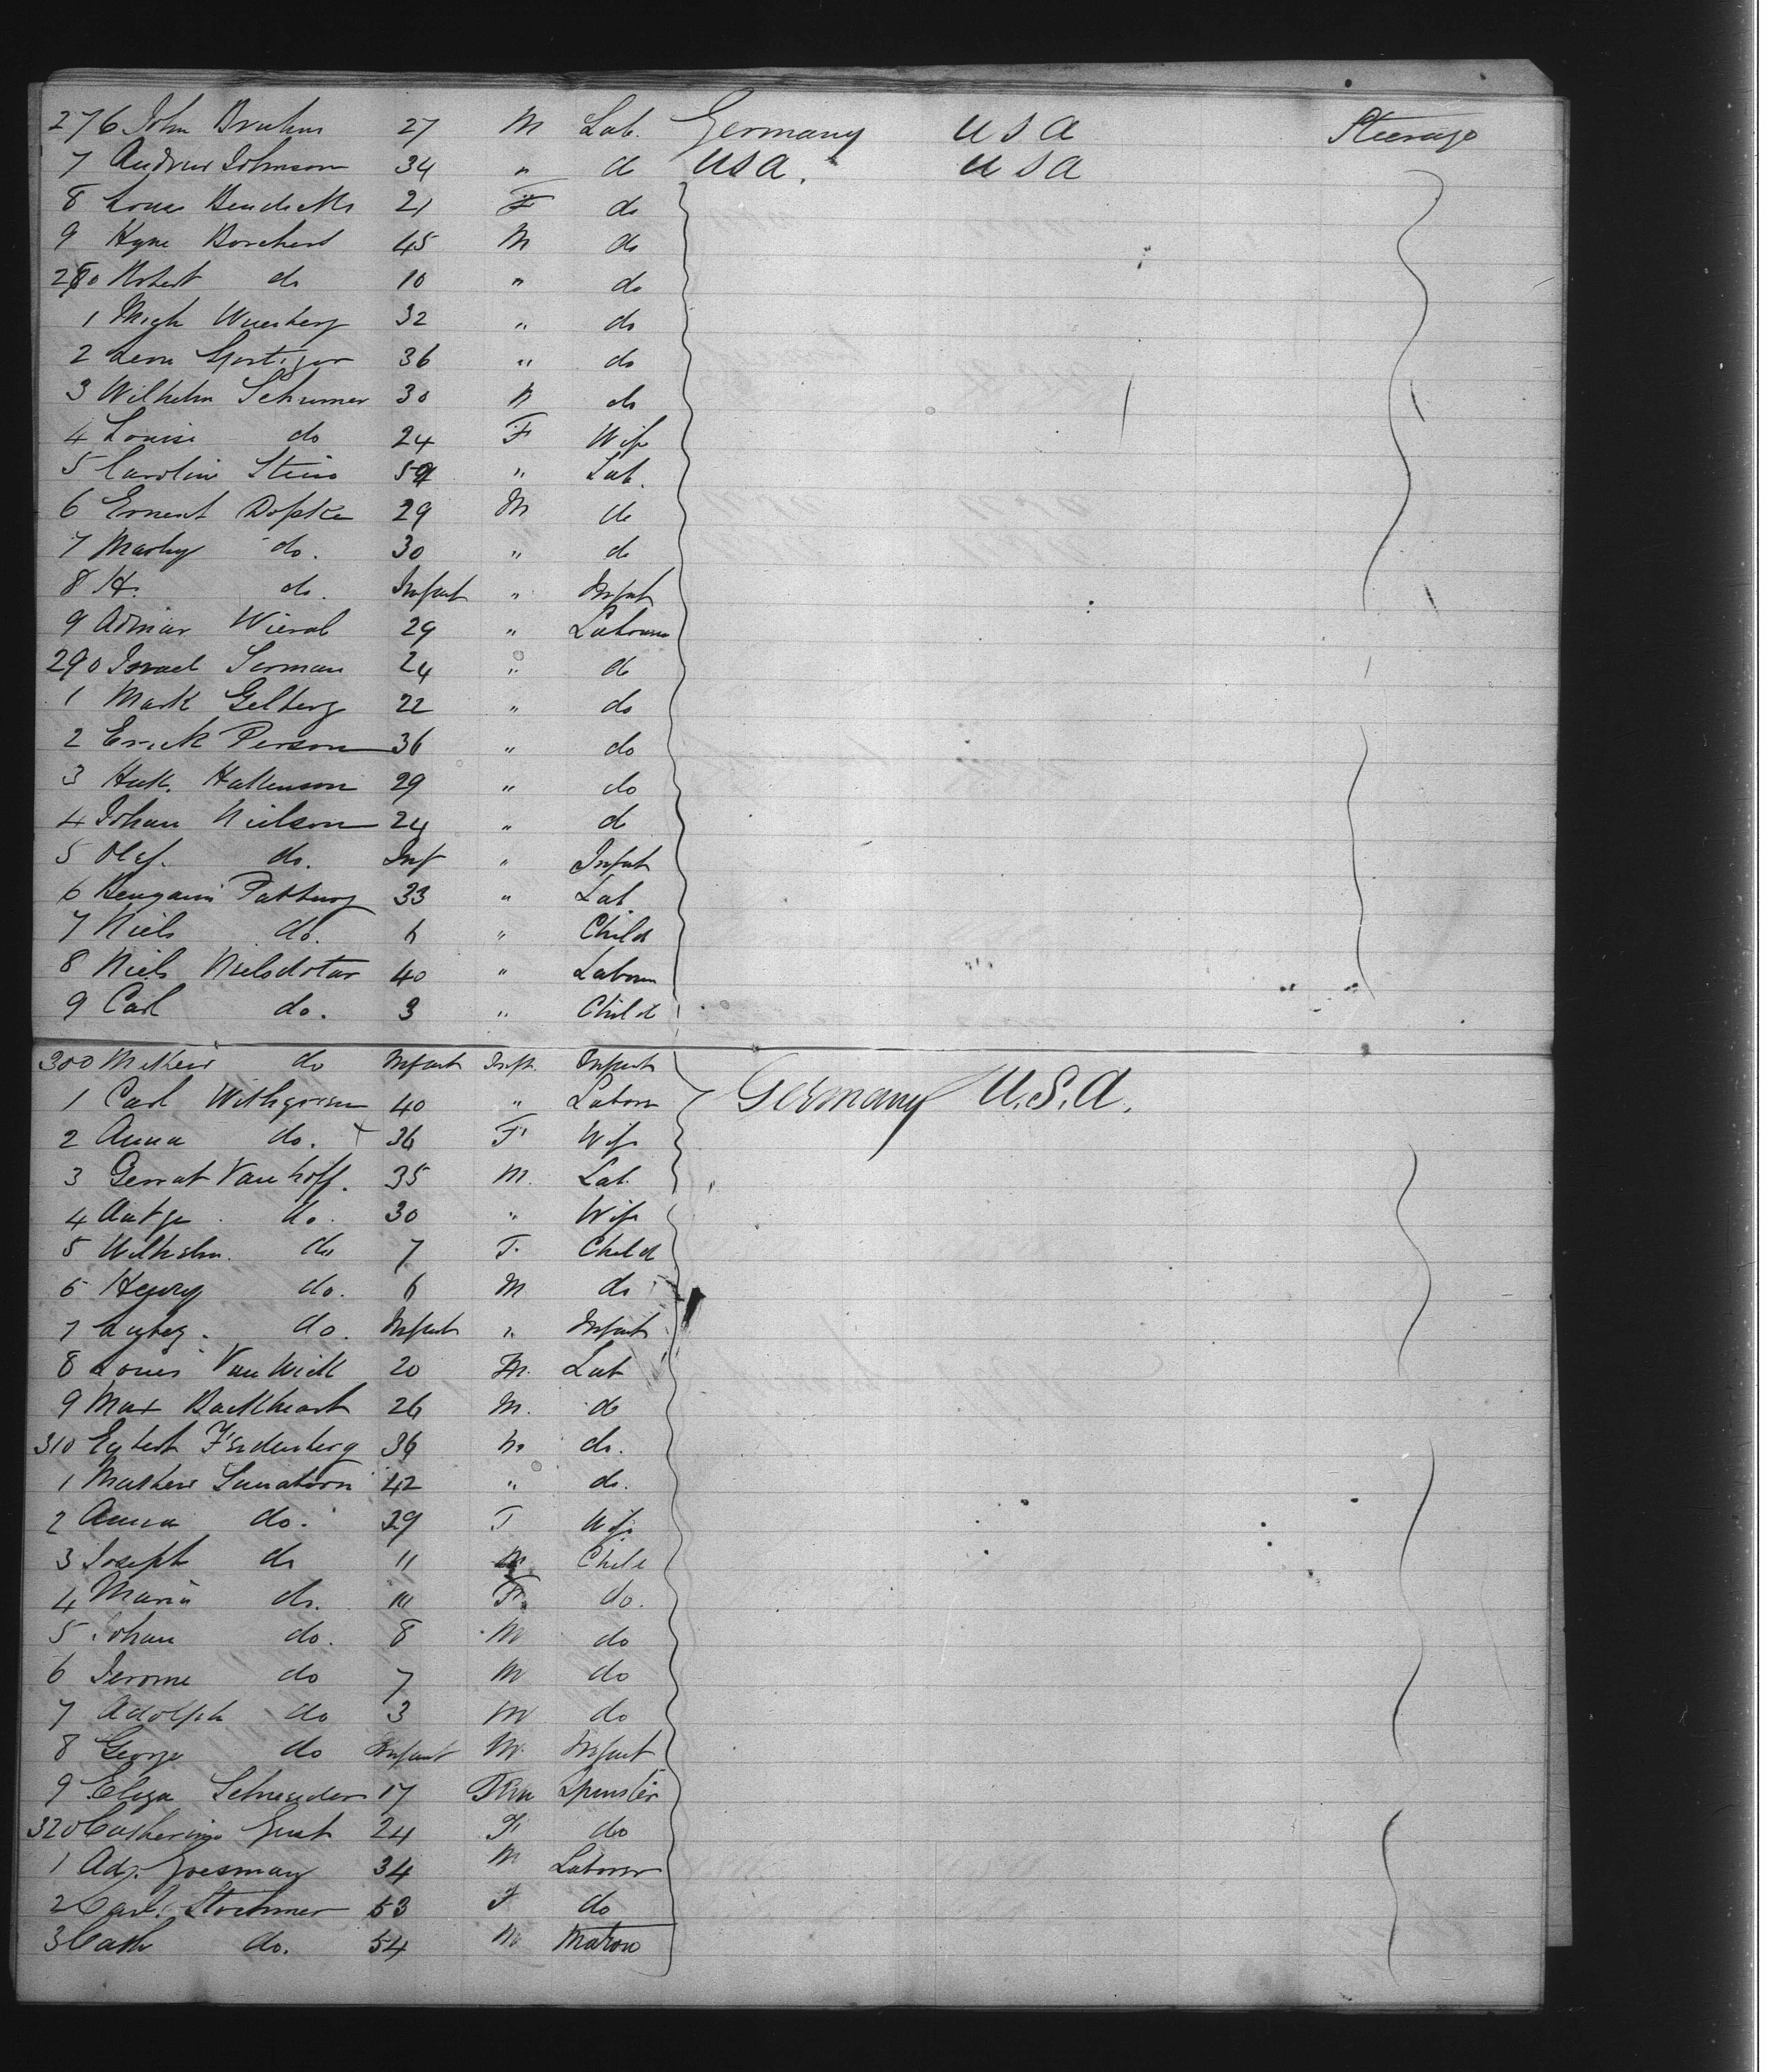 276 John Bruhns 27 M Lab. Germany U S A Steerage
7 Andrew Johnson 34 " do U S A. U S A
8 Louis Bendicks 21 F do
9 Borchert 45 M do
280 Robert do 10 " do
1 Mich 32 " do
2 36 " do
3 Wilhelm Schumer 30 M do
4 Louise do 24 F Wife
5 Carolin Stein " Lab.
6 Ernest Dopke 29 M do
7 do. 30 " do
8 H. do. Infant " Infant
9 Wieral 29 " Laborer
290 Israel Serman 24 " do
1 Mark Gelberg 22 " do
2 Erick Person 36 " do
3 Hak. Hakenson 29 " do
4 Johan Nielson 24 " do
5 Olef. do. Inf " Infant
6 33 " Lab
7 Niels do. 6 " Child
8 Niels Nielsdotar 40 " Laborer
9 Carl do. 3 " Child
300 Mathew do Infant Inft. Infant
1 Carl 40 " Laborer Germany U.S.A.
2 Anna do. 36 F Wife
3 Gerrat Van hoff. 35 M. Lab
4 Antje do. 30 " Wife
5 Wilhelm. do 7 F. Child
6 Henry do. 6 M do
7 do. Infant " Infant
8 Louis Van Wick 20 M. Lab
9 Max Backheart 26 M. do
310 Egbert 36 M do.
1 Mathew 42 " do.
2 Anna do. 39 F Wife
3 Joseph do 11 M Child
4 Maria do. F. do.
5 Johan do. 8 M do
6 Jerome do 7 M do
7 Adolph do 3 M do
8 George do Infant M. Infant
9 Eliza Schneider 17 Fem Spinster
320 Catherine 24 F do
1 Ad. 34 M Laborer
2 Carl. Stochmer 53 F do
3 Cath do. 54 M Matron